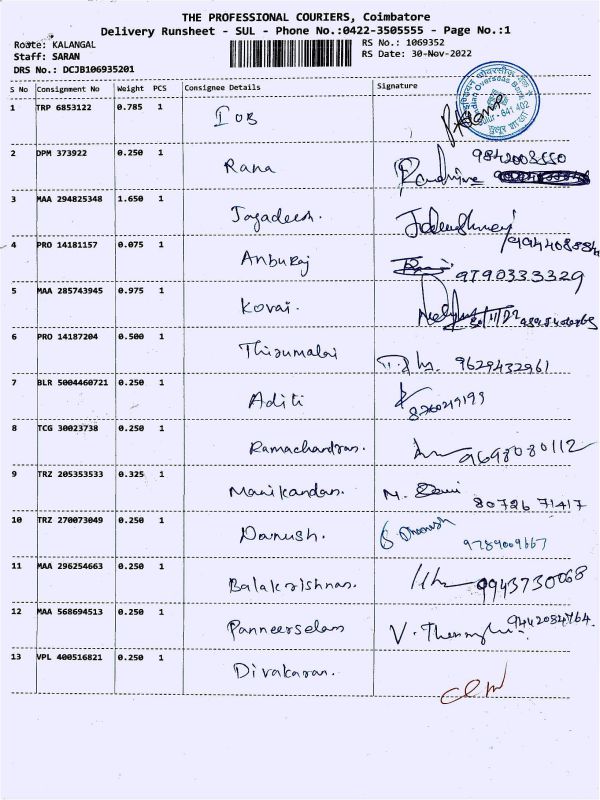 THE PROFESSIONAL COURIERS, Coimbatore
Delivery Runsheet - SUL - Phone No.:0422-3505555 - Page No.:1
Route: KALANGAL
RS No.: 1069352
Staff: SARAN
RS Date: 30-Nov-2022
DRS No.: DCJB106935201
S No Consignment No Weight PCS Consignee Details Signature
1 TRP 6853122 0.785 1 IOB
2 DPM 373922 0.250 1 Rana 9842003550
3 MAA 294825348 1.650 1 Jagadeesh.
4 PRO 14181157 0.075 1 Anburaj 9790333329
5 MAA 285743945 0.975 1 Kovai.
6 PRO 14187204 0.500 1 Thirumalai 9629432961
7 BLR 5004460721 0.250 1 Aditi
8 TCG 30023738 0.250 1 Ramachandran. 9698080112
9 TRZ 205353533 0.325 1 Manikandan. 80726 71417
10 TRZ 270073049 0.250 1 Danush. 9789009667
11 MAA 296254663 0.250 1 Balakrishnan. 9943730068
12 MAA 568694513 0.250 1 Panneerselam 9442034764
13 VPL 400516821 0.250 1 Divakaran.